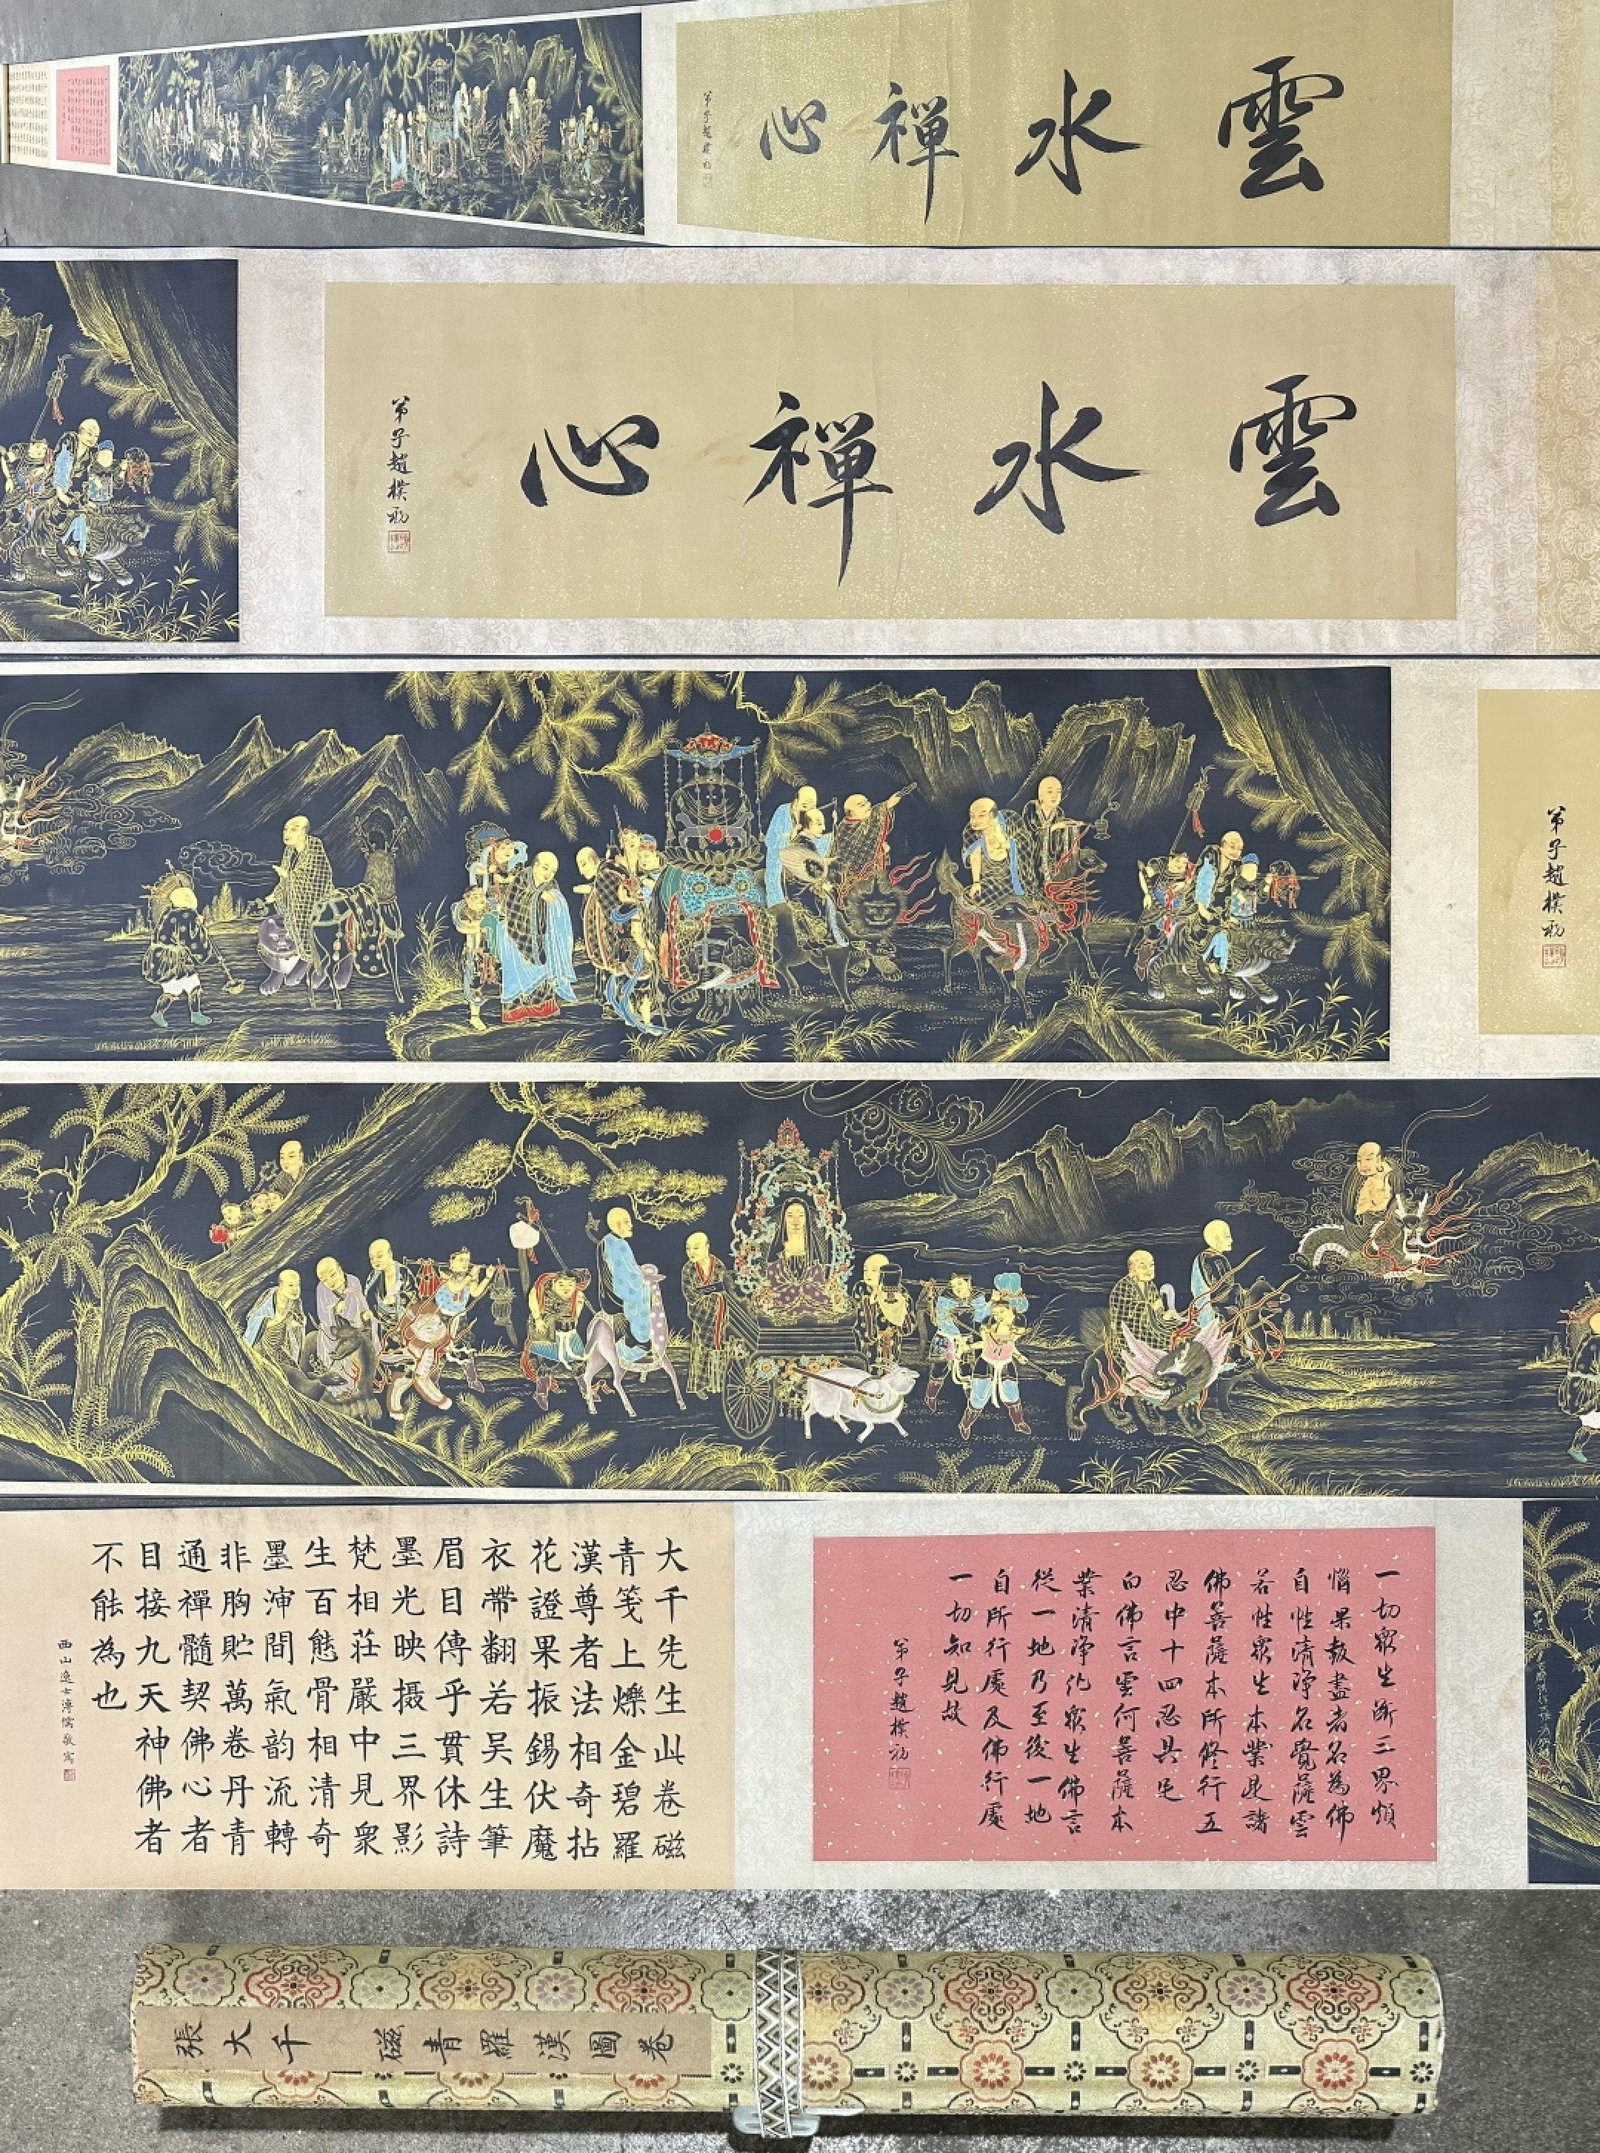 雲水禪心
弟子趙樸初
雲水禪心
弟子趙樸初
弟子趙樸初
一切眾生斷三界煩
惱果報盡者名為佛
自性清淨名覺薩雲
若性眾生本業是諸
佛菩薩本所修行五
忍中十四忍具足
白佛言雲何菩薩本
業清淨化眾生佛言
從一地乃至後一地
自所行處及佛行處
一切知見故
弟子趙樸初
大千先生此卷磁
青箋上爍金碧羅
漢尊者法相奇拈
花證果振錫伏魔
衣帶翻若吳生筆
眉目傳乎貫休詩
墨光映摄三界影
梵相莊嚴中見衆
生百態骨相清奇
墨渖間氣韵流轉
非胸貯萬卷丹青
通禪髓契佛心者
目接九天神佛者
不能為也
西山逸士溥儒敬寫
張大千 磁青羅漢圖卷